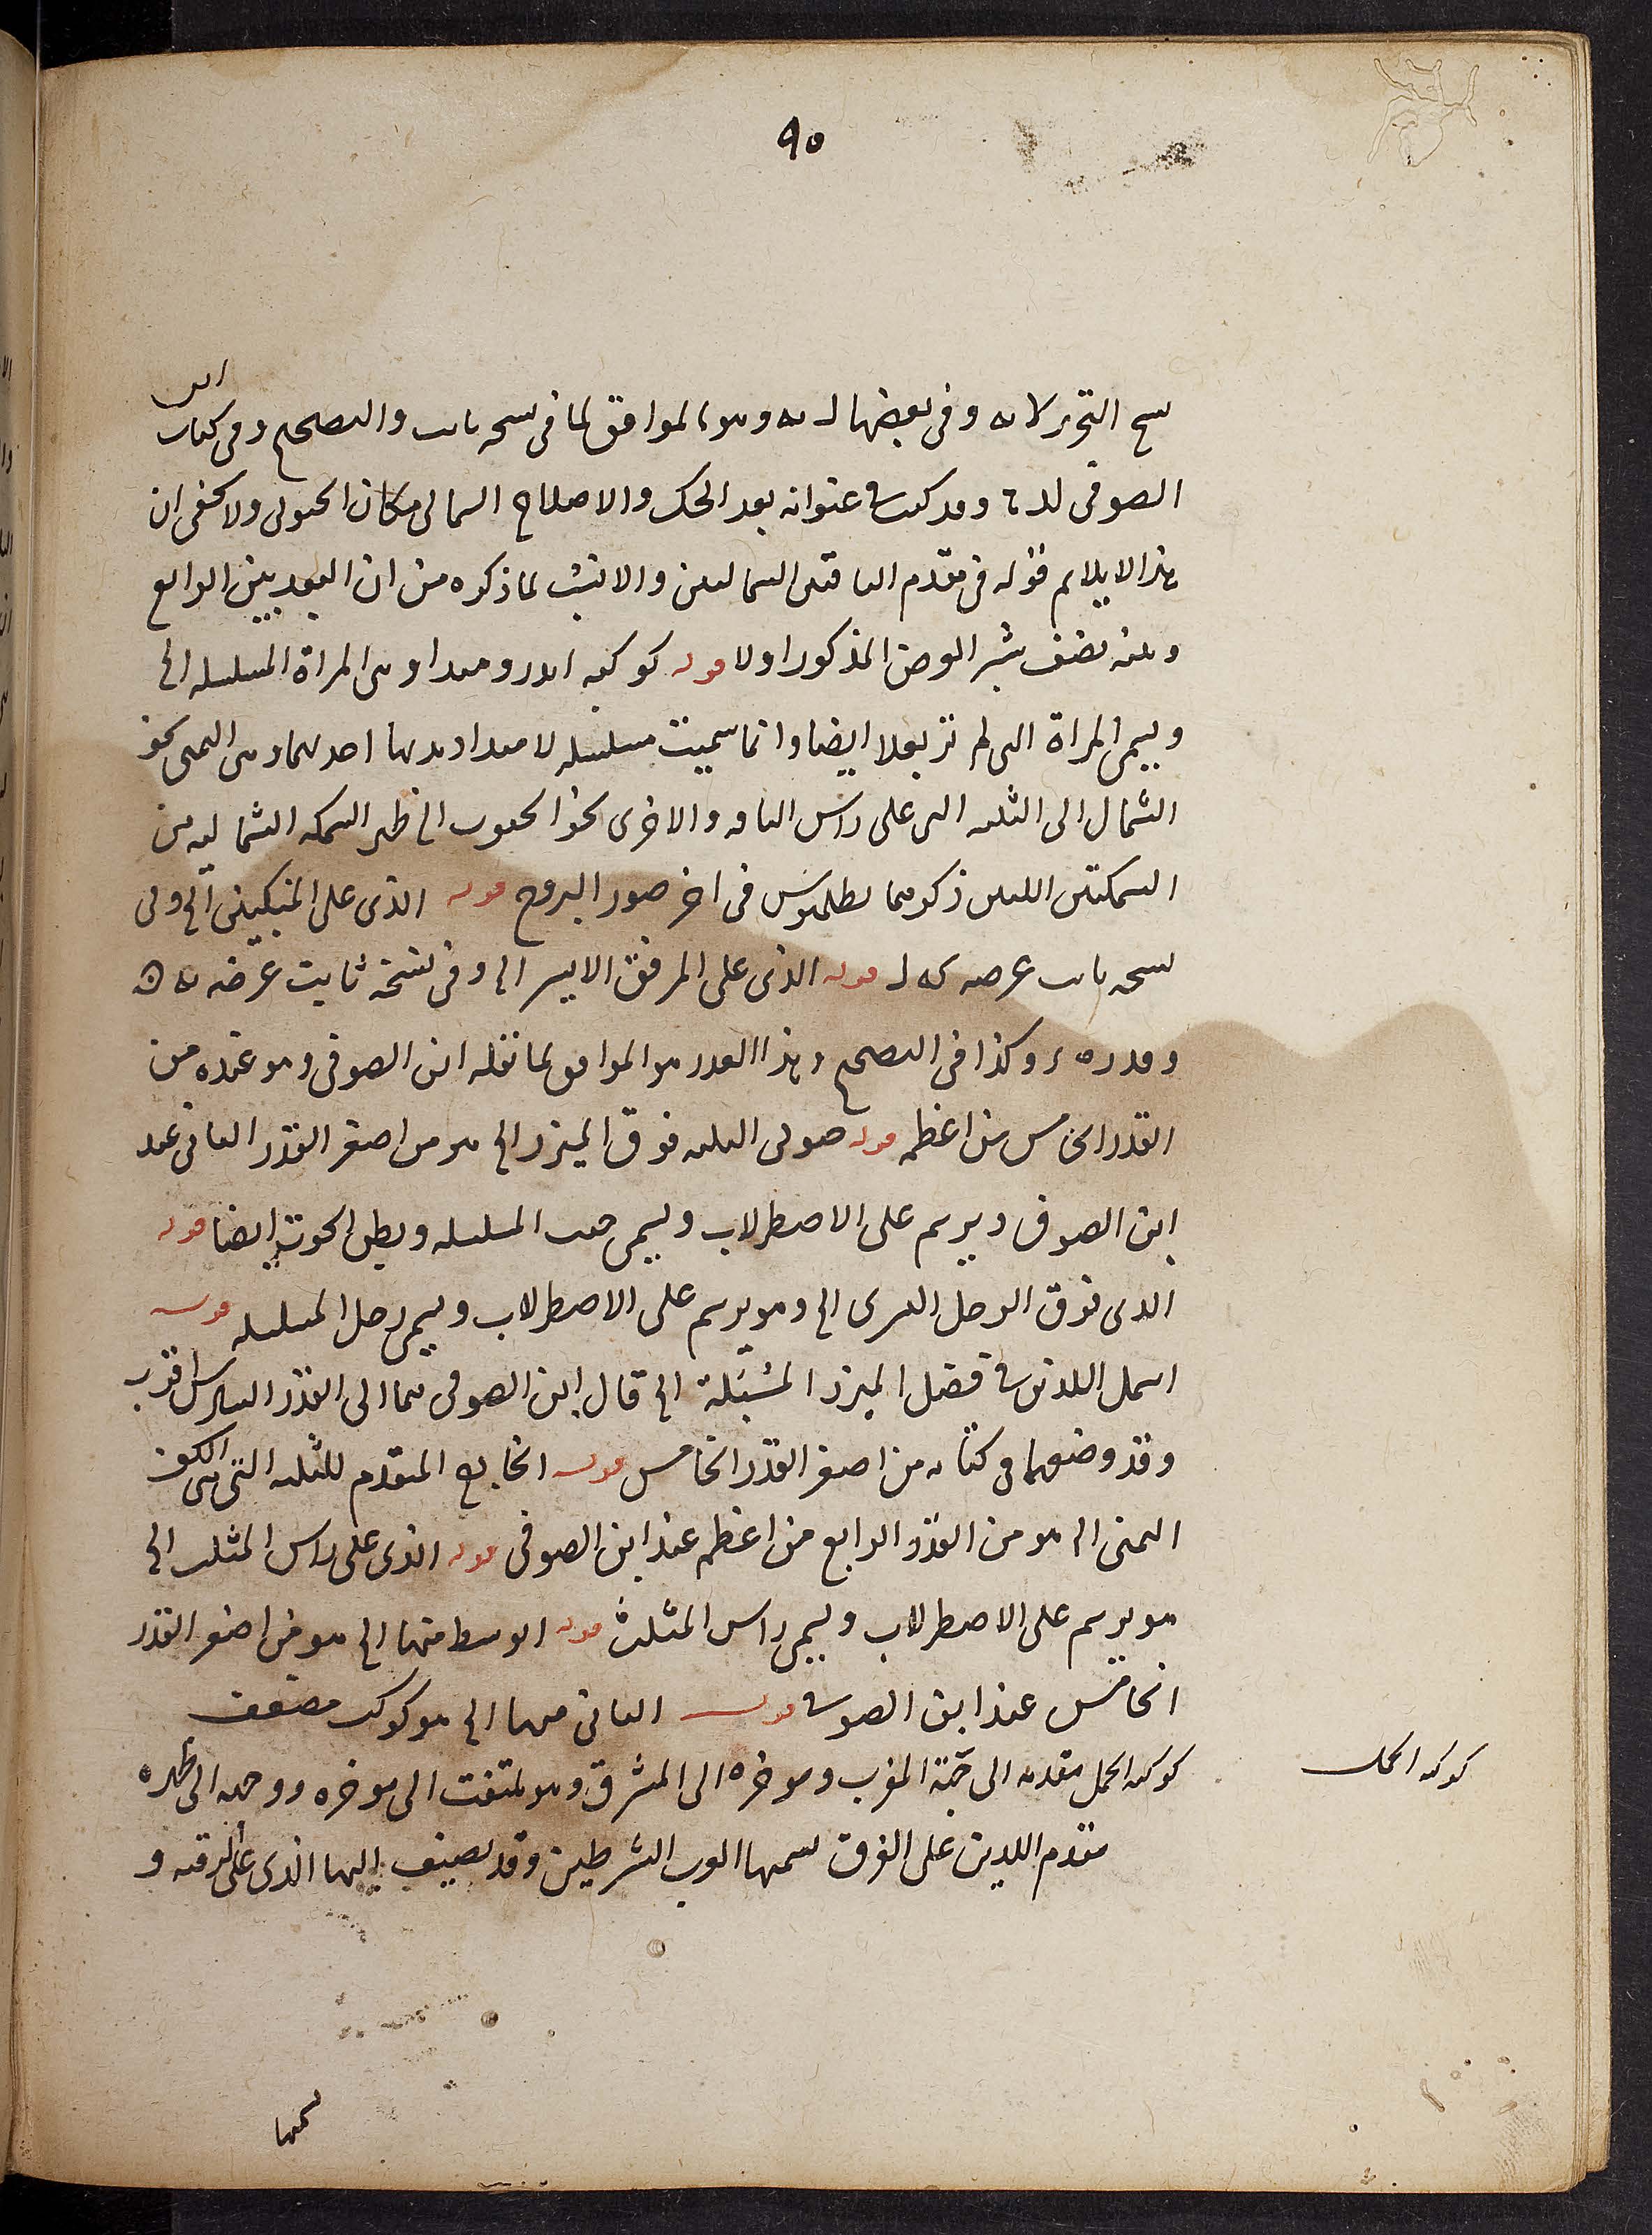 ٩٥
نسخ التحرير لا ىه وفى بعضها ل ىه وهو الموافق لما فى نسخه ثابت والتصحيح وفى كتاب ابن
الصوفى وقد كتب فى عنوانه بعد الحك والاصلاح الشمالى مكان الجنوبى ولا يخفى ان
هذا لا يلايم قوله فى مقدم الباقيين الشماليين والانسب لما ذكره من ان البعد بين الرابع
وبينه نصف شبر العرض المذكور اولا قوله كوكبه اندروميدا وهى المراة المسلسله الى
ويسمى المراة التى لم تر بعلا ايضا وانما سميت مسلسله لامتداد يديها احديهما وهى اليمنى نحو
الشمال الى الثلثه التى على راس الناقه والاخرى نحو الجنوب الى ظهر السمكه الشماليه من
السمكتين اللتين ذكرهما بطلميوس فى اخر صور البروج قوله الذى على المنكبين الى وفى
نسخه ثابت عرضه كه ل قوله الذى على المرفق الايسر الى وفى نسخة ثابت عرضه
وقدره وكذا فى التصحيح وهذا القدر هو الموافق لما نقله ابن الصوفى وهو عنده من
القدر الخامس من اعظمه قوله جنوبى الثلثه فوق الميزر الى هو من اصغر القدر الثانى عند
ابن الصوفى ويرسم على الاصطرلاب ويسمى جنب المسلسله وبطن الحوت ايضا قوله
الذى فوق الرجل اليسرى الى وهو يرسم على الاصطرلاب ويسمى رجل المسلسله قوله
اشمل اللذين فى فضل الميزر المسبلة الى قال ابن الصوفى هما الى القدر السادس اقرب
وقد وضعهما فى كتابه من اصغر القدر الخامس قوله الخارج المتقدم للثلثه التى فى الكف
اليمنى الى هو من القدر الرابع من اعظمه عند ابن الصوفى قوله الذى على راس المثلث الى
هو يرسم على الاصطرلاب ويسمى راس المثلث قوله الوسط منها الى هو من اصغر القدر
الخامس عند ابن الصوفى قوله الثانى منهما الى هو كوكب مضعف
كوكبه الحمل مقدمه الى جهة المغرب وموخره الى المشرق وهو ملتفت الى موخره ووجهه الى ظهره
كوكبه الحمل
مقدم اللذين على القرن يسميهما العرب الشرطين وقد يضيف اليهما الذى على القرنه و
يسميها